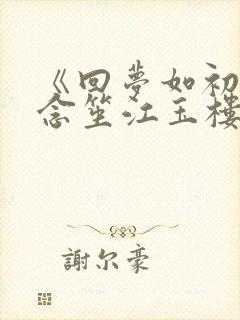 《回夢如初
念笙江玉樓
謝尔豪